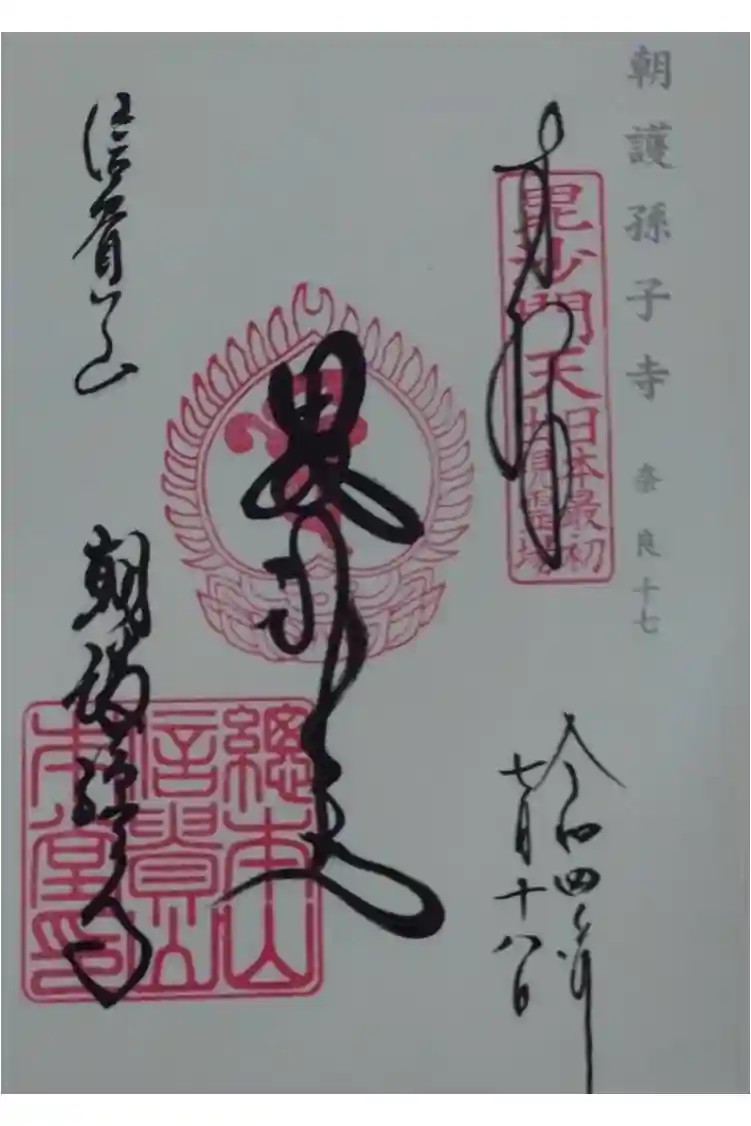 朝護孫子寺 奈良十七
奉拝
毘沙門天王
日本最初
出現霊場
令和四年
七月十八日
毘沙門天
信貴山
朝護孫子寺
總本山
信貴山
本堂印